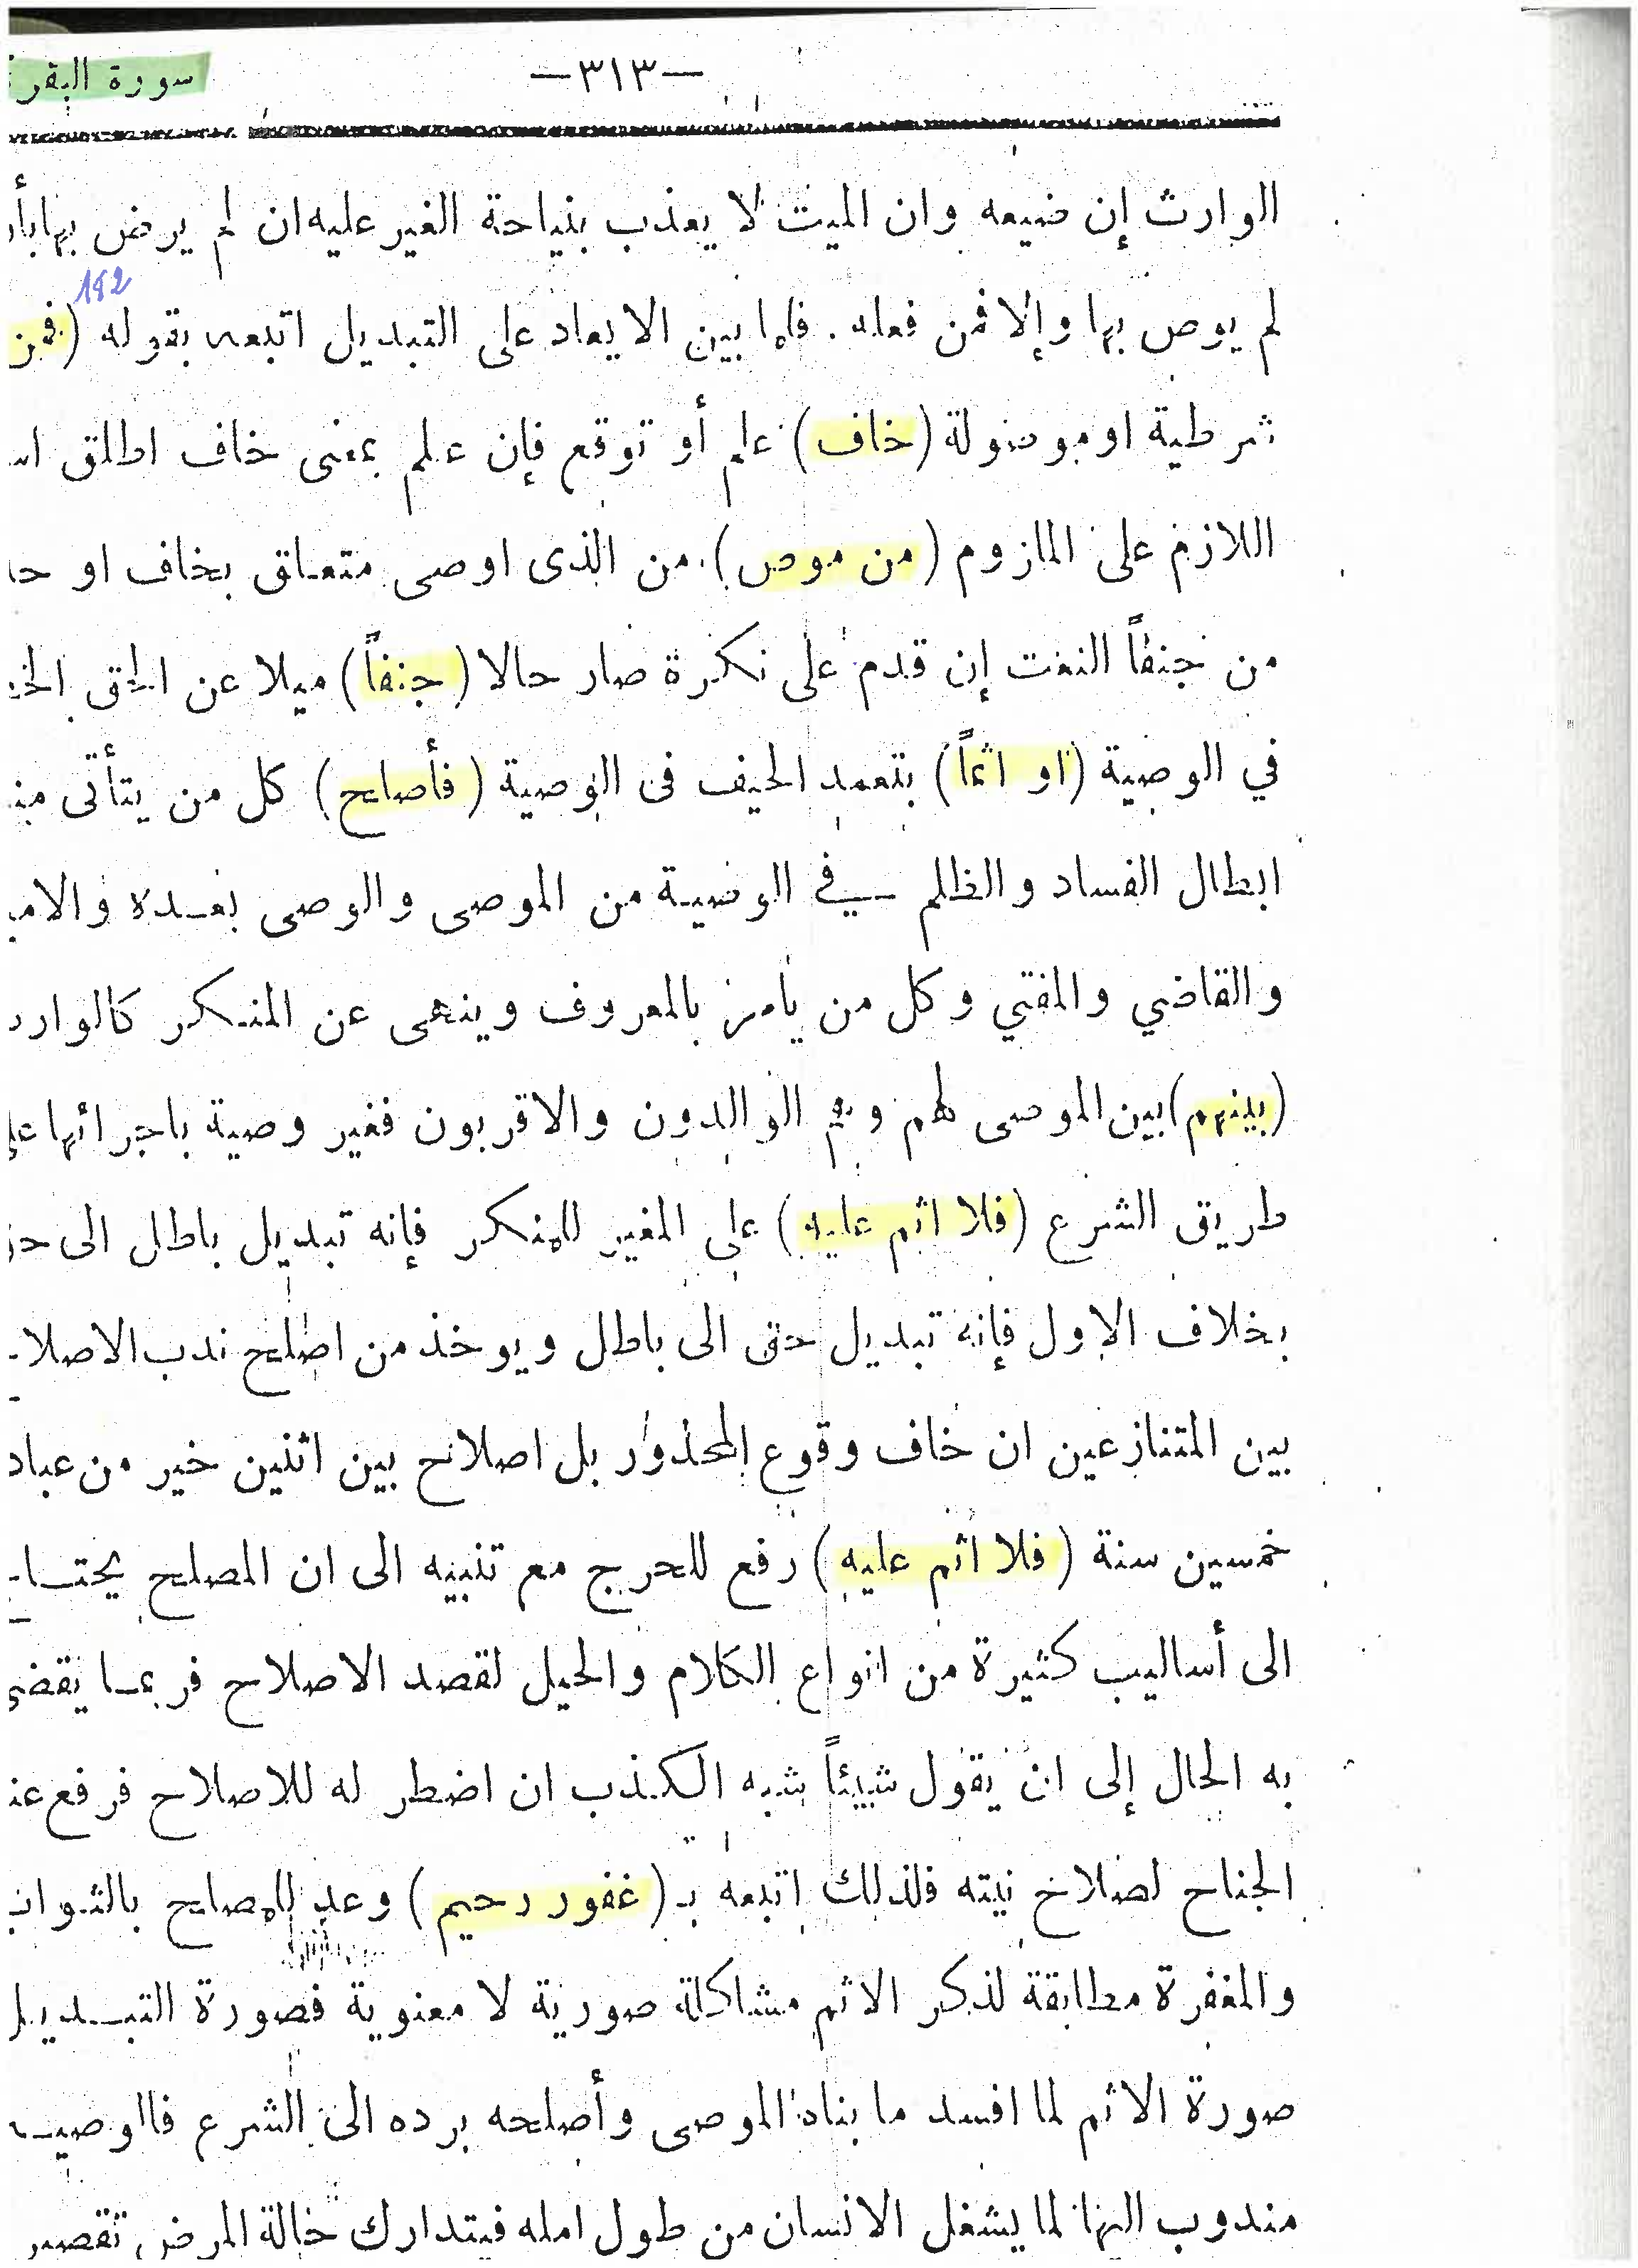 سورة البقر
—٣١٣—
الوارث إن ضيعه وان الميت لا يعذب بنياحة الغير عليه ان لم يرض بها بأن
182
لم يوص بها وإلا فمن فعله . فلما بين الايعاد على التبديل اتبعه بقوله (فمن
شرطية او موصولة (خاف) علم أو توقع فإن علم بمعنى خاف اطلق
اللازم على الملزوم (من موص) من الذى اوصى متعلق بخاف او
من جنفاً النعت إن قدم على نكرة صار حالا (جنفاً) ميلا عن الحق
في الوصية (او اثماً) بتعمد الحيف فى الوصية (فأصلح) كل من يتأتى
ابطال الفساد والظلم في الوصية من الموصى والوصى بعده
والقاضي والمفتي وكل من يامر بالمعروف وينهى عن المنكر
(بينهم) بين الموصى لهم وهم الوالدون والاقربون فغير وصية باجرائها على
طريق الشرع (فلا اثم عليه) على المغير للمنكر فإنه تبديل باطل الى
بخلاف الاول فإنه تبديل حق الى باطل ويوخذ من اصلح ندب
بين المتنازعين ان خاف وقوع المحذور بل اصلاح بين اثنين خير من
خمسين سنة (فلا اثم عليه) رفع للحرج مع تنبيه الى ان المصلح
الى أساليب كثيرة من انواع الكلام والحيل لقصد الاصلاح فربما يقضى
به الحال إلى ان يقول شيئاً شبه الكذب ان اضطر له للاصلاح فرفع
الجناح لصلاح نيته فلذلك اتبعه بـ (غفور رحيم) وعد للمصلح
والمغفرة مطابقة لذكر الاثم مشاكلة صورية لا معنوية فصورة التبديل
صورة الاثم لما افسد ما بناه الموصى وأصلحه برده الى الشرع
مندوب اليها لما يشغل الانسان من طول امله فيتدارك حالة المرض تقصير